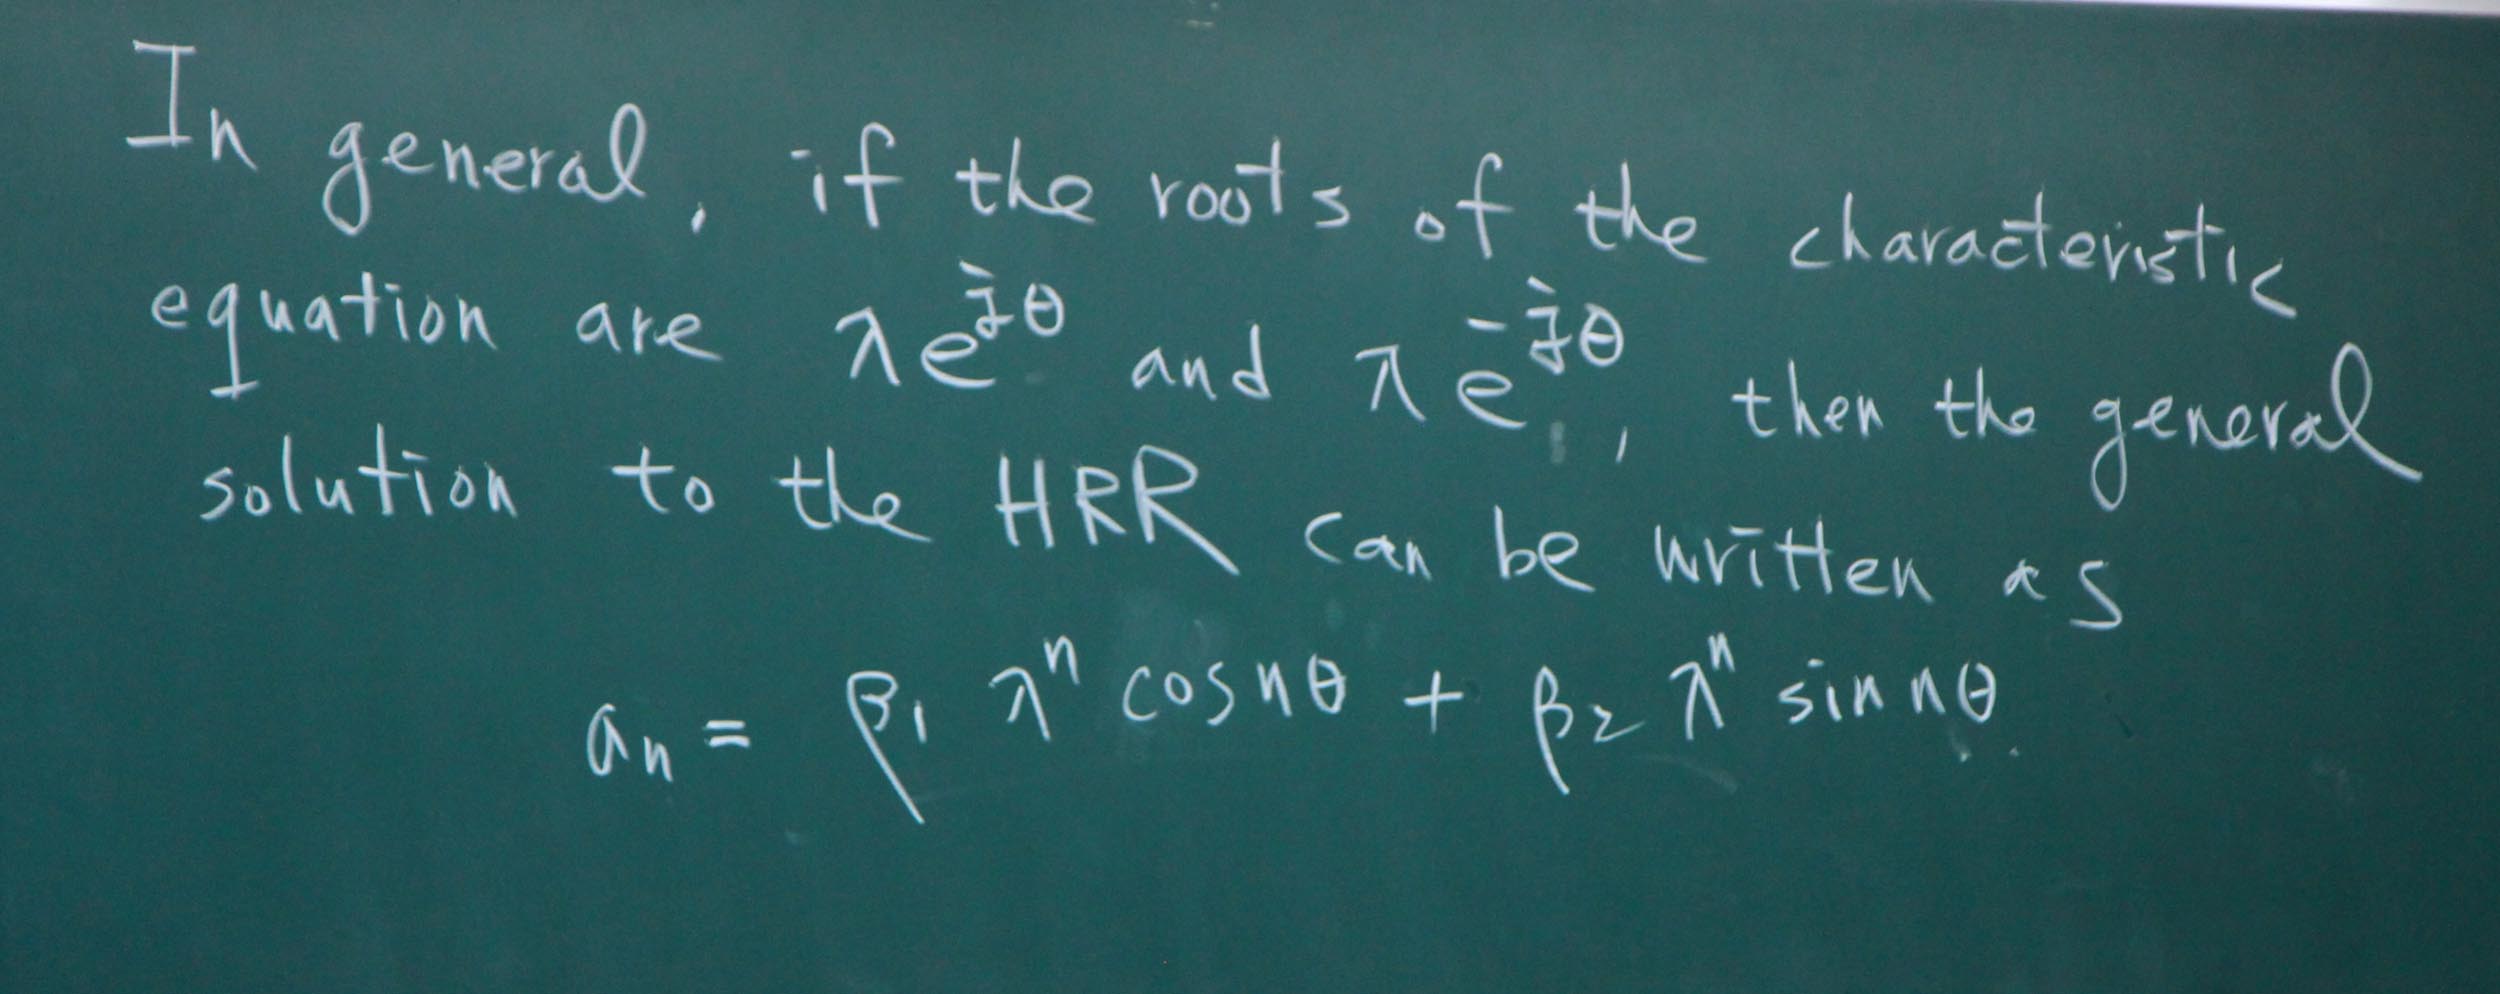 In general, if the roots of the characteristic
equation are λe^{jθ} and λe^{-jθ}, then the general
solution to the HRR can be written as
aₙ = β₁ λⁿ cos nθ + β₂ λⁿ sin nθ.